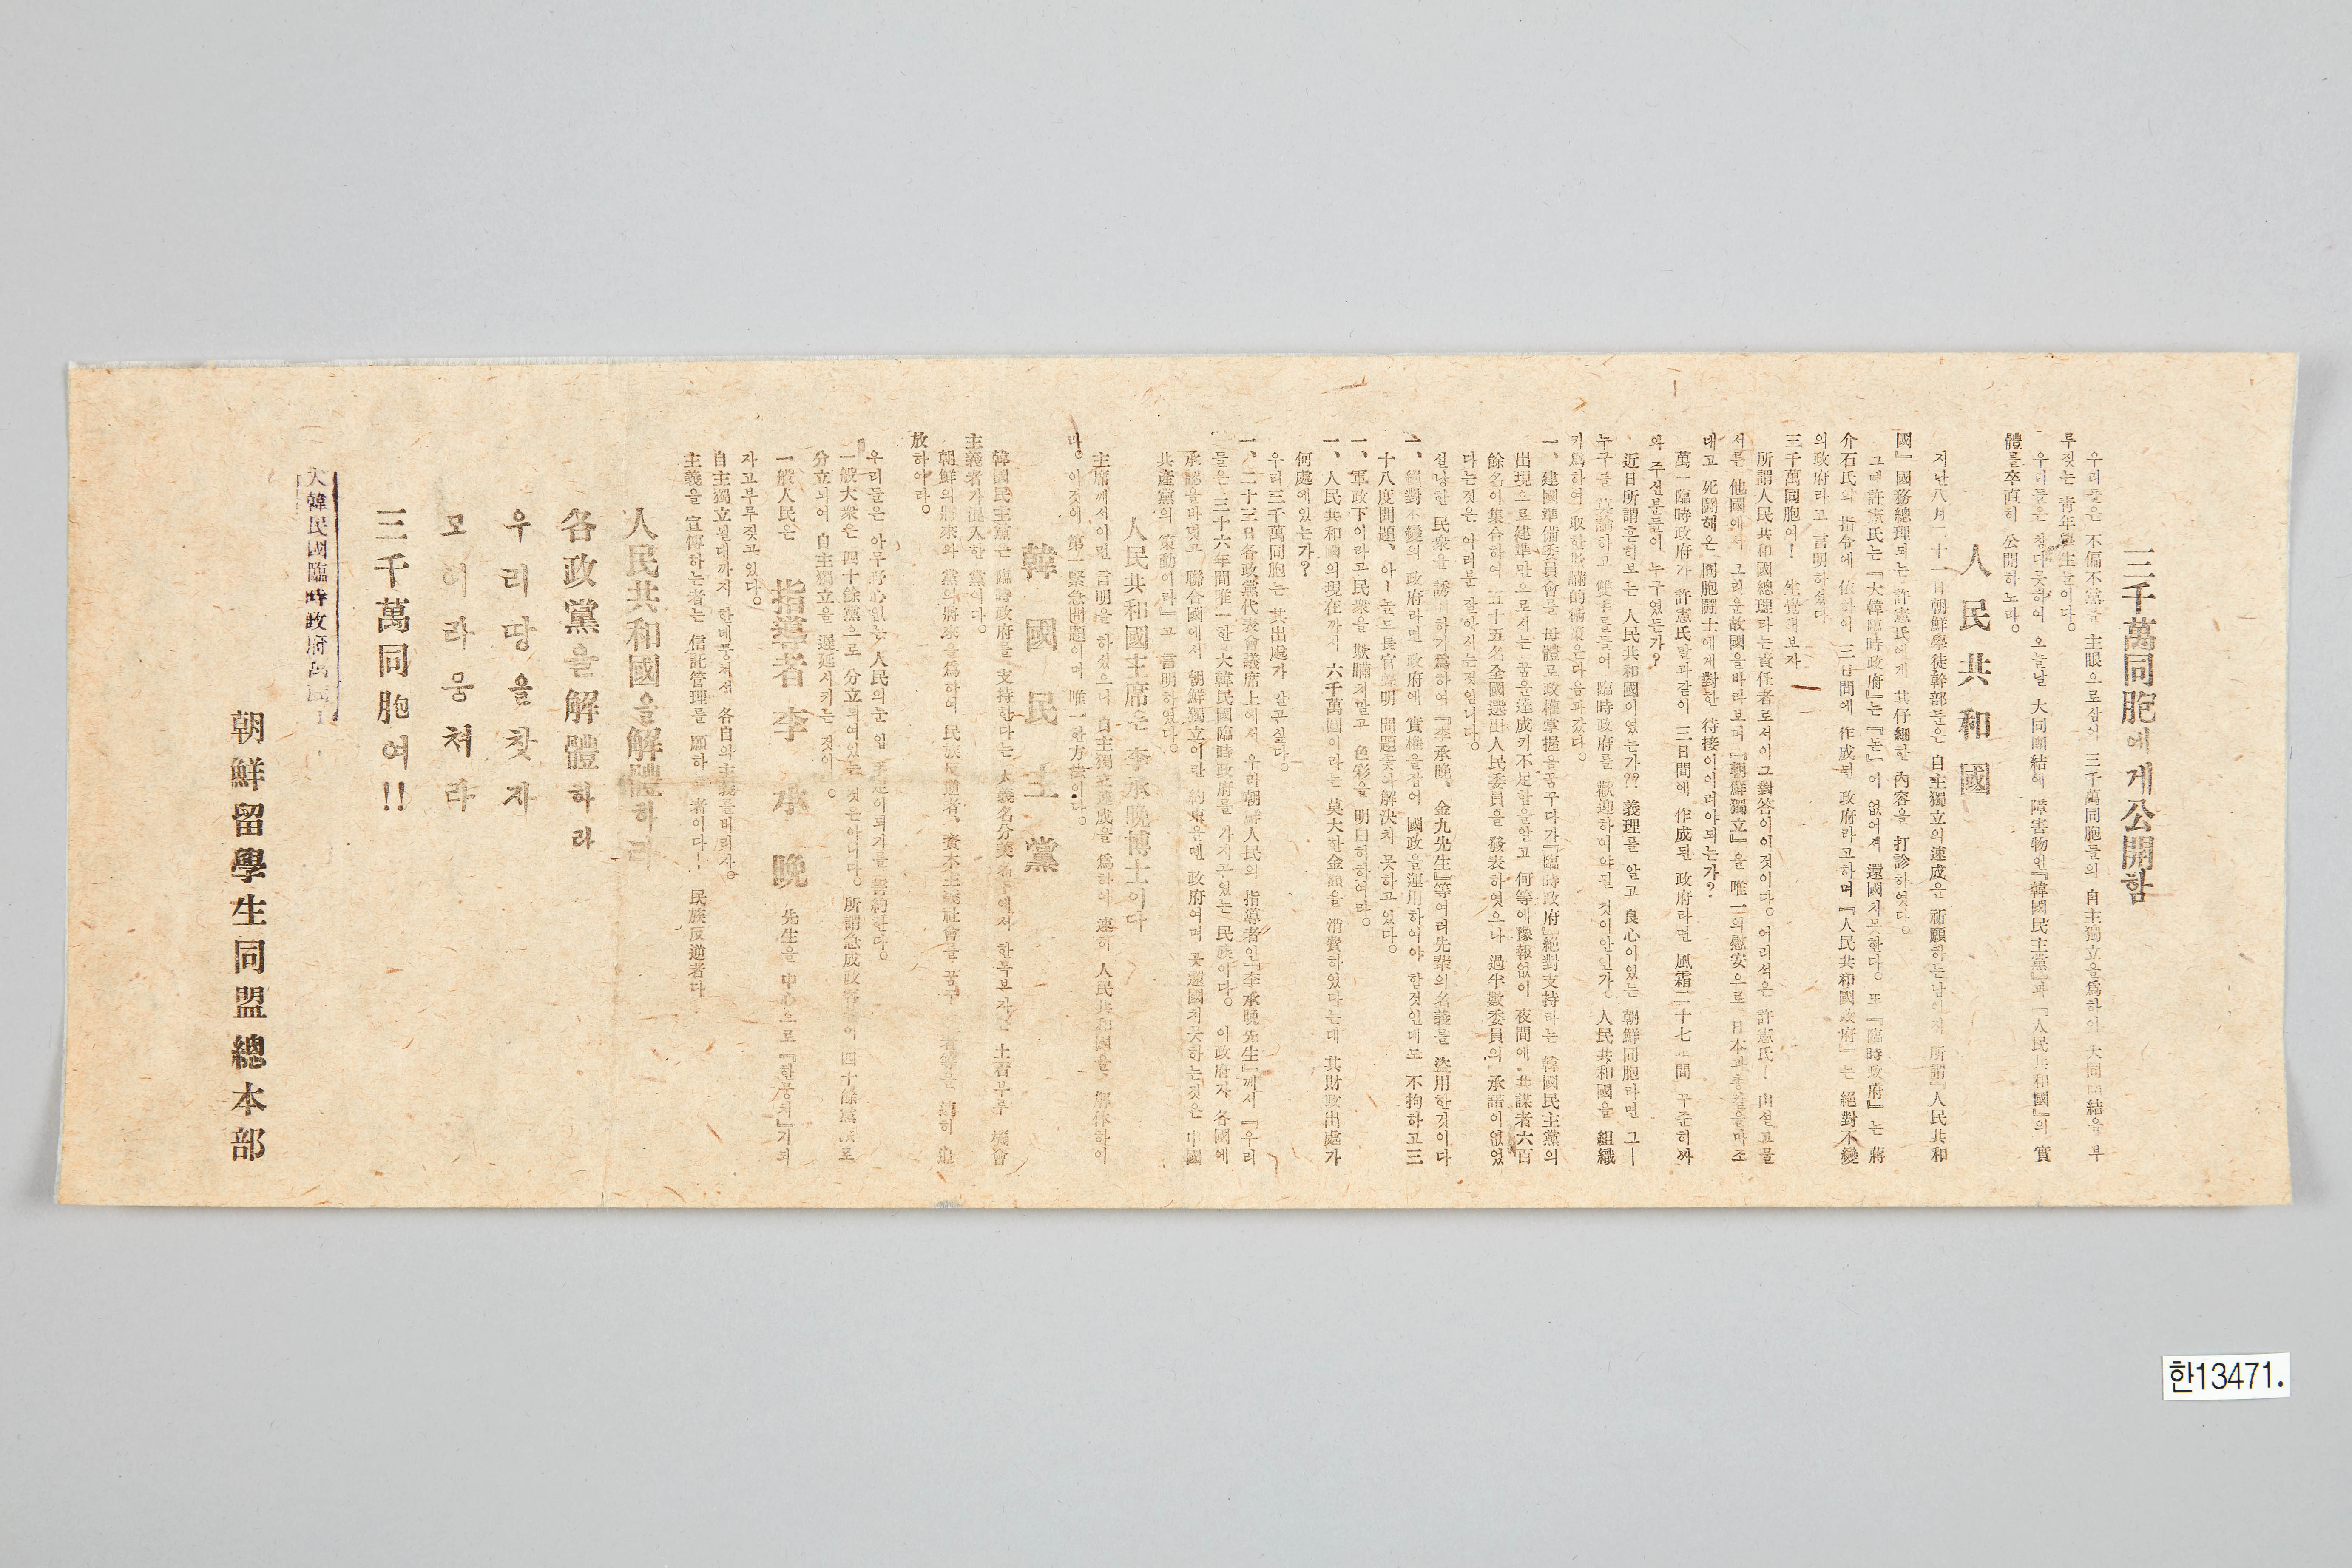 三千萬同胞에게公開함
우리들은 不偏不黨을 主眼으로삼어 三千萬同胞들의 自主獨立을爲하야 大同團結을 부
루짖는 靑年學生들이다。
우리들은 참다못하여 오늘날 大同團結에 障害物인『韓國民主黨』과『人民共和國』의 實
體를 卒直히 公開하노라。
人民共和國
지난八月二十一日朝鮮學徒幹部들은 自主獨立의速成을 祈願하는남어지 所謂『人民共和
國』國務總理되는 許憲氏에게 其仔細한 內容을 打診하엿다。
그때許憲氏는『大韓臨時政府』는『돈』이 없어서 還國치못한다。또『臨時政府』는 蔣
介石氏의 指令에 依하여 三日間에 作成된 政府라고하며『人民共和國政府』는 絕對不變
의政府라고 言明하섰다
三千萬同胞여! 生覺해보자
所謂人民共和國總理라는責任者로서이그對答이이것이다。어리석은 許憲氏!
서른 他國에서 그리운故國을바라보며『朝鮮獨立』을 唯一의慰安으로 日本과총칼을마조
대고 死鬪해온 同胞鬪士에게對한 待接이이러야되는가?
萬一臨時政府가 許憲氏말과같이 三日間에 作成된 政府라면 風霜二十七年間 꾸준히싸
와 주신분들이 누구였든가?
近日所謂흔히보는 人民共和國이였든가?? 義理를 알고 良心이있는 朝鮮同胞라면 그ㅡ
누구를 莫論하고 雙手를들어 臨時政府를 歡迎하여야될 것이안인가、人民共和國을 組織
키爲하여 取한欺瞞的術策은다음과같다。
一、建國準備委員會를 母體로政權掌握을꿈꾸다가『臨時政府』絕對支持라는 韓國民主黨의
出現으로建準만으로서는 꿈을達成키不足함을알고 何等에豫報없이 夜間에 共謀者六百
餘名이集合하여 五十五名全國選出人民委員을 發表하엿으나 過半數委員의 承諾이없었
다는것은 여러분 잘아시는것입니다。
一、선량한 民衆을 誘引하기爲하여『李承晚、金九先生』等여러先輩의名義를 盜用한것이다
一、絕對不變의 政府라면 政府에 實權을잡어 國政을運用하여야 할것인데도 不拘하고三
十八度問題、아ㅣ놀드長官聲明 問題좃아解決치 못하고있다。
一、軍政下이라고民衆을 欺瞞치말고 色彩을 明白히하여라。
一、人民共和國의現在까지 六千萬圓이라는 莫大한金額을 消費하였다는데 其財政出處가
何處에있는가?
우리三千萬同胞는 其出處가 알고싶다。
一、二十三日各政黨代表會議席上에서 우리朝鮮人民의 指導者인『李承晚先生』께서『우리
들은 三十六年間唯一한大韓民國臨時政府를 가지고있는 民族이다。이政府가 各國에
承認을바덧고 聯合國에서 朝鮮獨立이란 約束을땐 政府여며 못還國치못하는것은 中國
共產黨의 策動이라』고 言明하였다。
人民共和國主席은 李承晚博士이다
主席께서이런 言明을 하섰으니 自主獨立達成을 爲하여 速히 人民共和國을 解体하여
라。이것이 第一緊急問題이며 唯一한方法이다。
韓國民主黨
韓國民主黨은 臨時政府를 支持한다는 大義名分美名下에서
主義者가混入한 黨이다。
朝鮮의將來와 黨의將來을爲하여 民族反逆者、資本主義社會를꿈꾸
放하여라。
우리들은 아무野心없는 人民의눈 입 手足이되기를 誓約한다。
一般大衆은 四十餘黨으로 分立되여있는 것은아니다。所謂急成政客들이 四十餘黨으로
分立되여 自主獨立을 遲延시키는 것이다。
一般人民은 指導者 李承晚 先生을 中心으로『한뭉치』가되
자고부루짖고있다。
自主獨立될때까지 한데뭉처서 各自의主義를버리자。
主義을 宣傳하는者는 信託管理를 願하는者이다! 民族反逆者다
人民共和國을解體하라
各政黨을解體하라
우리땅을찾자
모여라뭉쳐라
三千萬同胞여!!
大韓民國臨時政府萬歲!
朝鮮留學生同盟總本部
한13471.